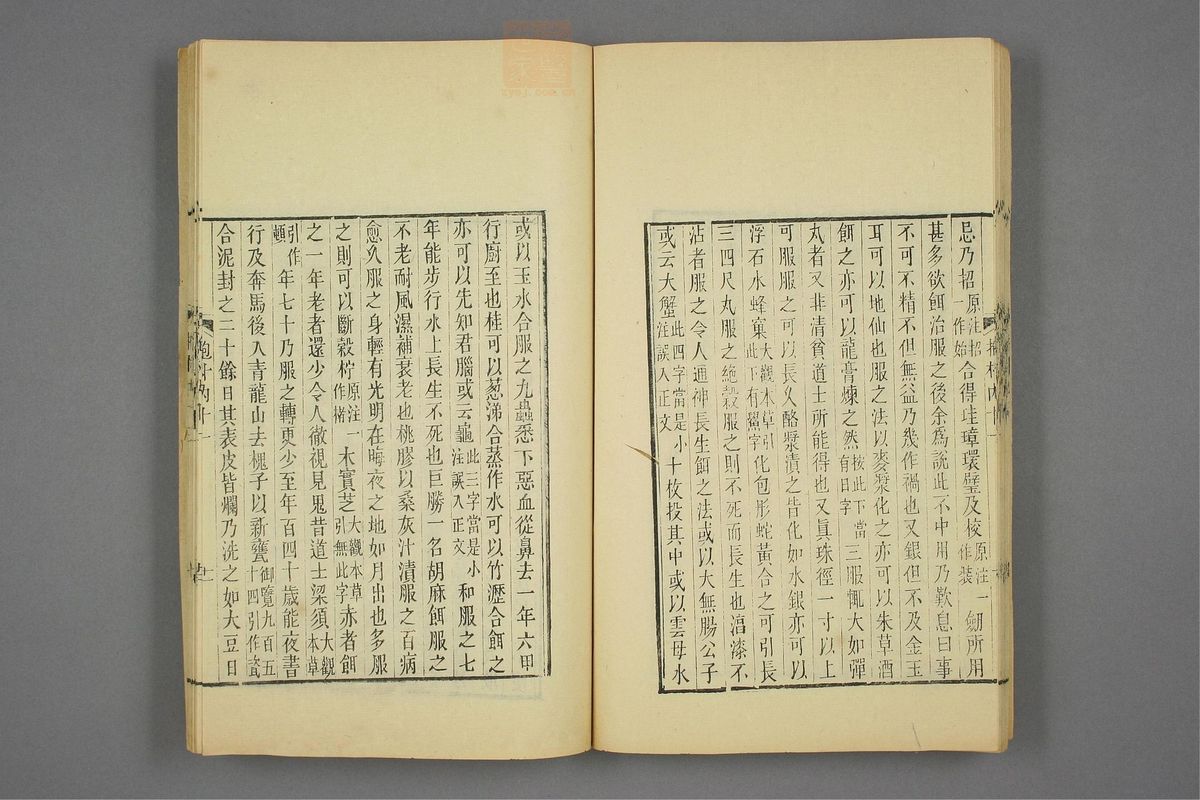 忌乃招原注招一作始合得珪璋環璧及校原注一作裝劒所用
甚多欲餌治服之後余爲說此不中用乃歎息曰事
不可不精不但無益乃幾作禍也又銀但不及金玉
耳可以地仙也服之法以麥漿化之亦可以朱草酒
餌之亦可以龍膏煉之然按此下當有日字三服輒大如彈
丸者又非清貧道士所能得也又眞珠徑一寸以上
可服服之可以長久酪漿漬之皆化如水銀亦可以
浮石水蜂窠大觀本草引此下有鱉字化包彤蛇黃合之可引長
三四尺丸服之絶穀服之則不死而長生也淳漆不
沾者服之令人通神長生餌之法或以大無腸公子
或云大蟹此四字當是小注誤入正文十枚投其中或以雲母水
或以玉水合服之九蟲悉下惡血從鼻去一年六甲
行廚至也桂可以葱涕合蒸作水可以竹瀝合餌之
亦可以先知君腦或云龜此三字當是小注誤入正文和服之七
年能步行水上長生不死也巨勝一名胡麻餌服之
不老耐風濕補衰老也桃膠以桑灰汁漬服之百病
愈久服之身輕有光明在晦夜之地如月出也多服
之則可以斷穀柠原注一作楮木實芝大觀本草引無此字赤者餌
之一年老者還少令人徹視見鬼昔道士梁須大觀本草
引作頓年七十乃服之轉更少至年百四十歲能夜書
行及奔馬後入青龍山去槐子以新甕御覽九百五十四引作瓷
合泥封之二十餘日其表皮皆爛乃洗之如大豆日